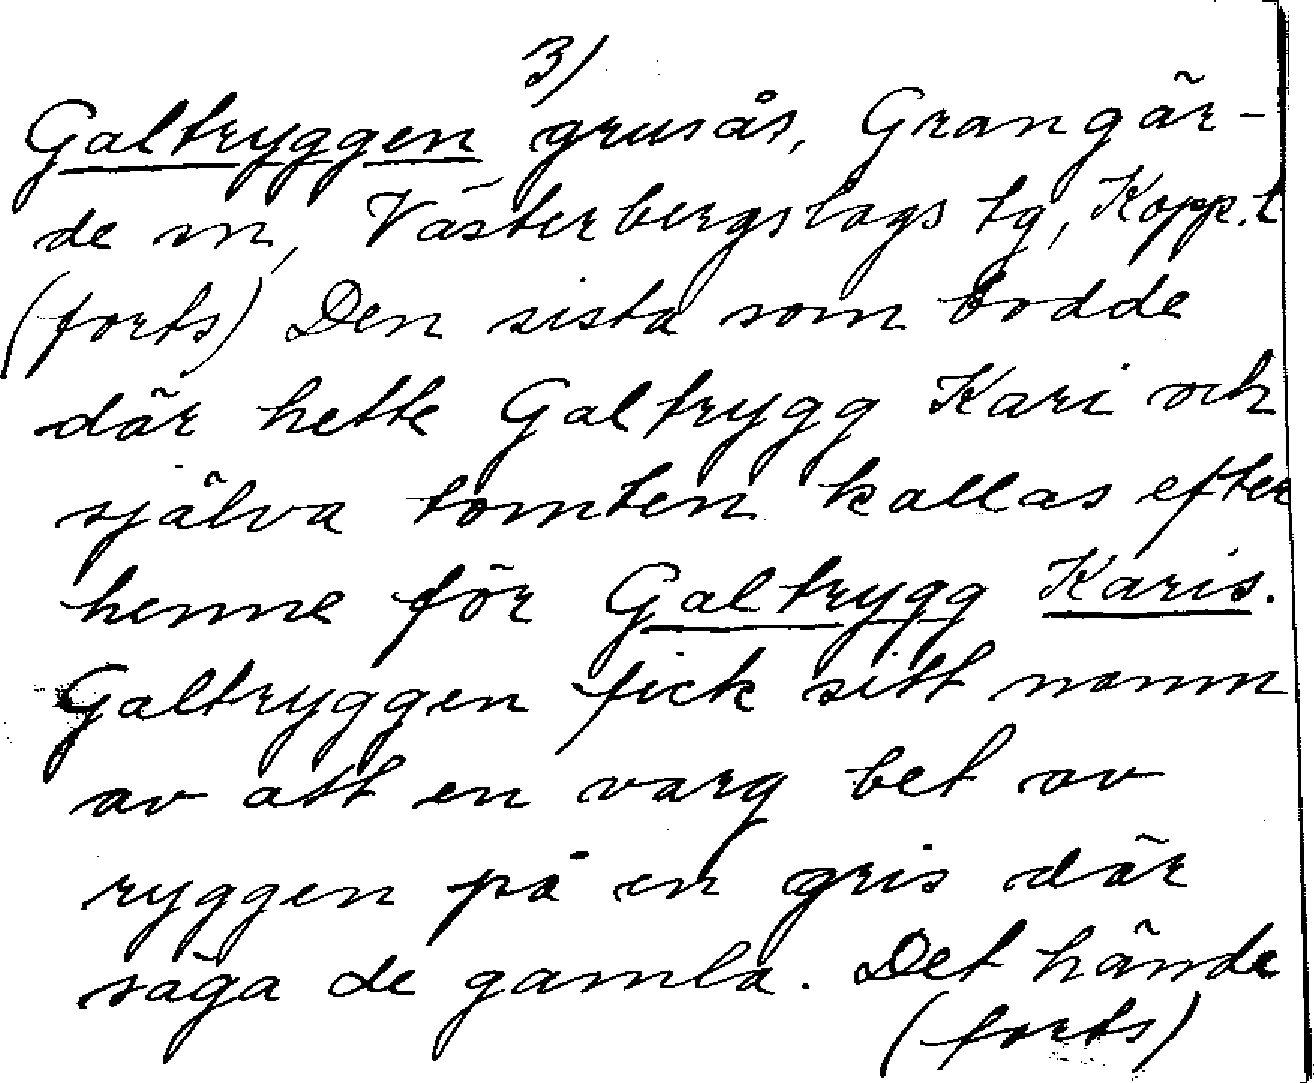 3)
Galtryggen grusås, Grangär-
de sn, Västerbergslags tg, Kopp.l
(forts) Den sista som bodde
där hette Galtrygg Kari och
själva tomten kallas efter
henne för Galtrygg Karis.
Galtryggen fick sitt namn
av att en varg bet av
ryggen på en gris där
säga de gamla. Det hände
(forts)